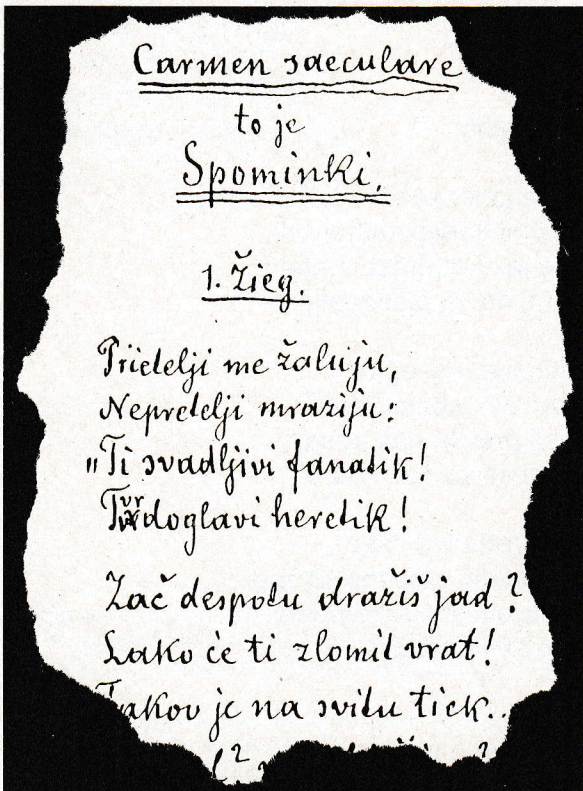 Carmen saeculare
to je
Spominki.
1. Žieg.
Prietelji me žaluju,
Nepretelji mraziju:
„Ti svadljivi fanatik!
Tvrdoglavi heretik!
Zač despotu dražiš jad?
Lako će ti zlomit vrat!
Takov je na svitu tiek..